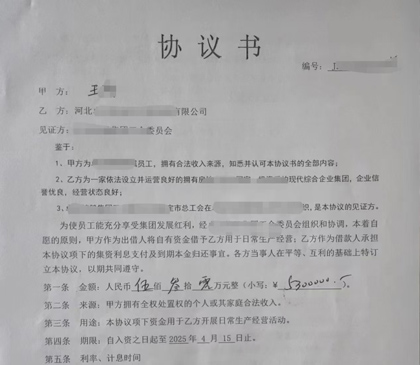 协 议 书
编号：
甲 方： 王
乙 方：河北 有限公司
见证方： 委员会
鉴于：
1、甲方为 员工，拥有合法收入来源，知悉并认可本协议书的全部内容；
2、乙方为一家依法设立并运营良好的拥有房 现代综合企业集团，企业信
誉优良，经营状况良好；
3、 定市总工会在 织，是本协议的见证方。
为使员工能充分享受集团发展红利，经 委员会组织和协调，本着自
愿的原则，甲方作为出借人将自有资金借予乙方用于日常生产经营；乙方作为借款人承担
本协议项下的集资利息支付及到期本金归还事宜。各方当事人在平等、互利的基础上特订
立本协议，以期共同遵守。
第一条 金额：人民币 伍佰 叁拾 零万元整（小写：¥5300000.
第二条 来源：甲方拥有全权处置权的个人或其家庭合法收入。
第三条 用途：本协议项下资金用于乙方开展日常生产经营活动。
第四条 期限：自入资之日起至 2025 年 4 月 15 日止。
第五条 利率、计息时间